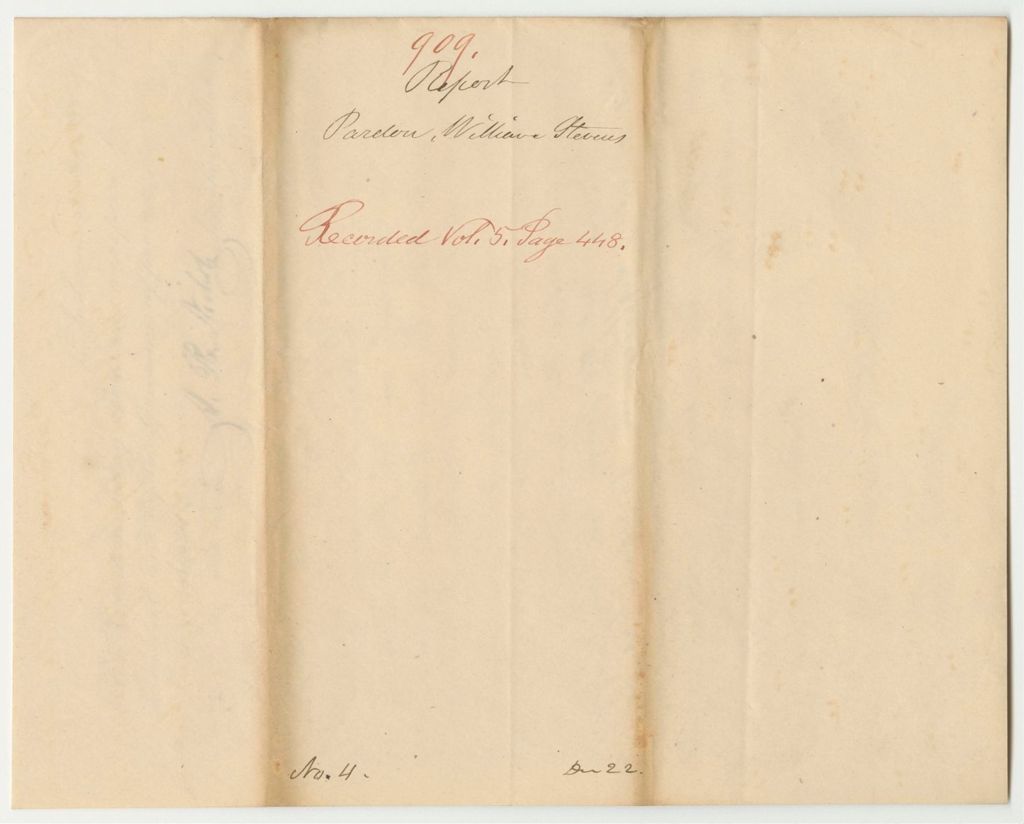 909.
Report
Pardon, William Stevens
Recorded Vol. 5. Page 448.
No. 4.
22.